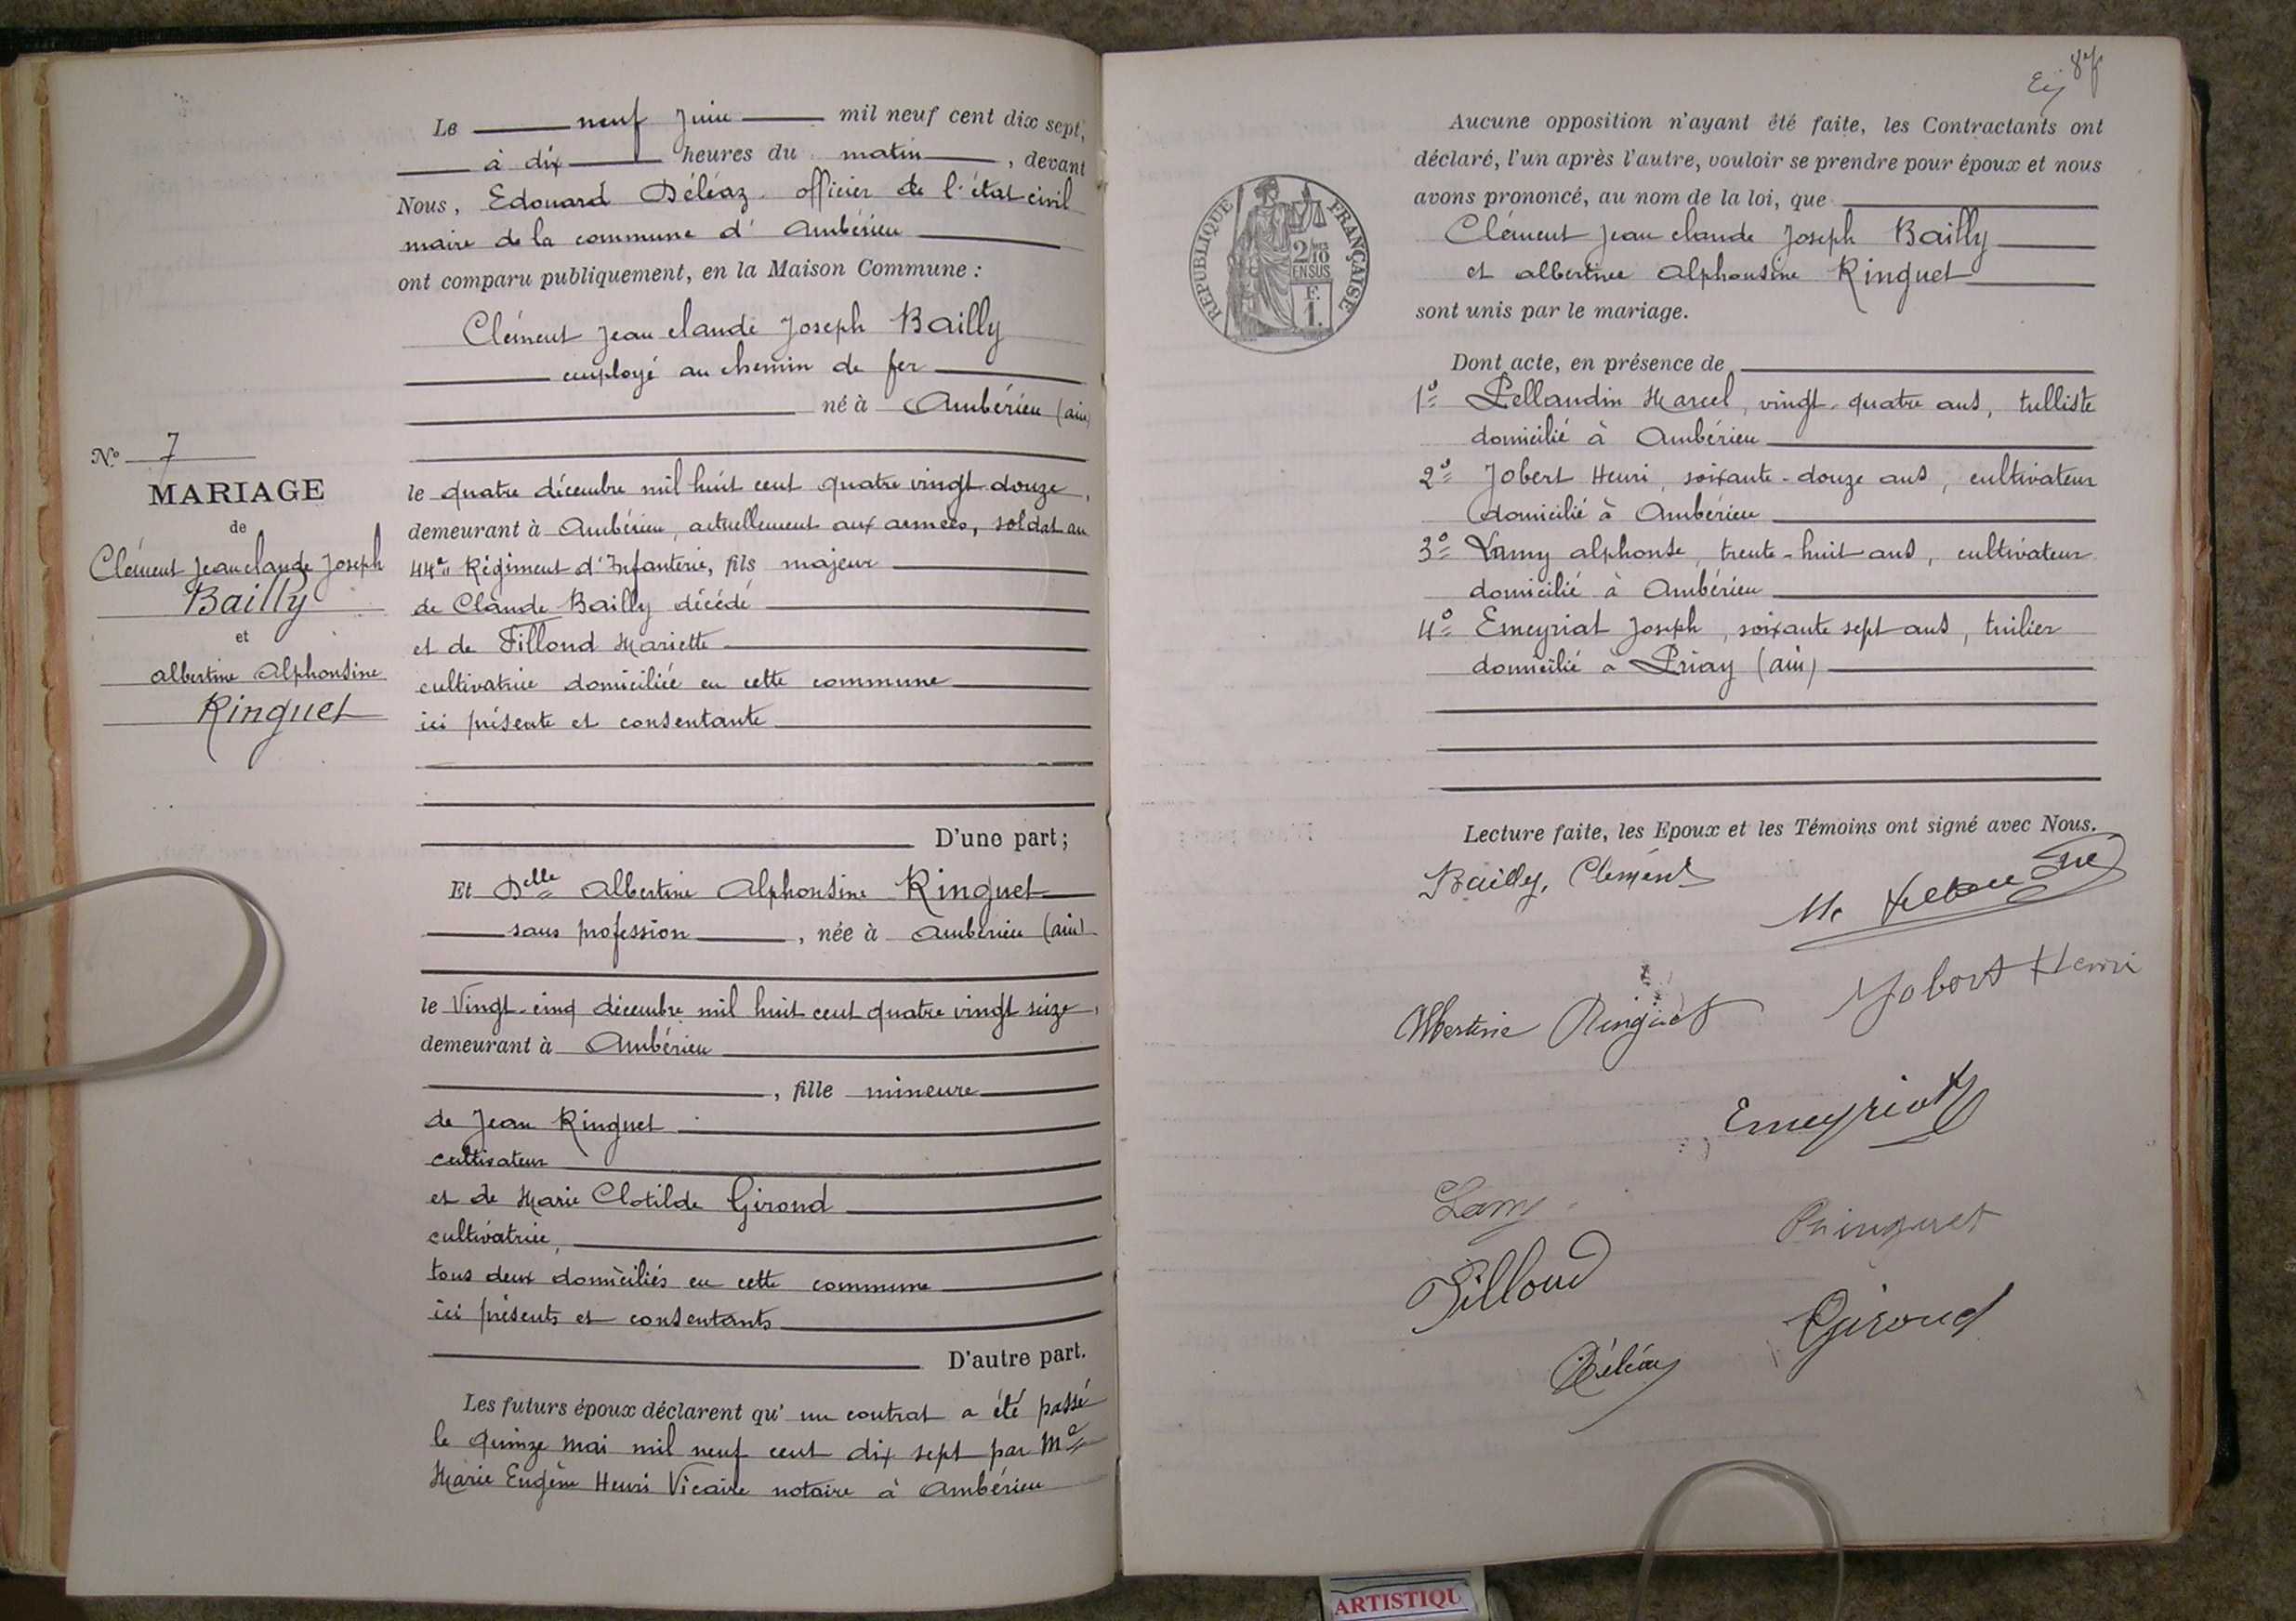 Le neuf Juin mil neuf cent dix sept,
à dix heures du matin, devant
Nous, Edouard Déléaz officier de l'état civil
maire de la commune d' Ambérieu
ont comparu publiquement, en la Maison Commune :
Clément Jean claude Joseph Bailly
employé au chemin de fer
né à Ambérieu (ain)
N° 7
MARIAGE
de
Clément Jean claude Joseph
Bailly
et
albertine Alphonsine
Ringuet
le quatre décembre mil huit cent quatre vingt douze,
demeurant à Ambérieu, actuellement aux armées, soldat au
44e Régiment d'Infanterie, fils majeur
de Claude Bailly décédé
et de Tilloud Mariette
cultivatrice domiciliée en cette commune
ici présente et consentante
D'une part;
Et Delle Albertine Alphonsine Ringuet
sans profession, née à Ambérieu (ain)
le Vingt-cinq décembre mil huit cent quatre vingt seize,
demeurant à Ambérieu
, fille mineure
de Jean Ringuet
cultivateur
et de Marie Clotilde Giroud
cultivatrice,
tous deux domiciliés en cette commune
ici présents et consentants
D'autre part.
Les futurs époux déclarent qu' un contrat a été passé
le quinze mai mil neuf cent dix sept par Me
Marie Eugène Henri Vicaire notaire à Ambérieu
87
Aucune opposition n'ayant été faite, les Contractants ont
déclaré, l'un après l'autre, vouloir se prendre pour époux et nous
avons prononcé, au nom de la loi, que
Clément Jean claude Joseph Bailly
et albertine Alphonsine Ringuet
sont unis par le mariage.
RÉPUBLIQUE FRANÇAISE
2/10
EN SUS
F.
1.
Dont acte, en présence de
1° Pellaudin Marcel, vingt-quatre ans, tulliste
domicilié à Ambérieu
2° Jobert Henri, soixante-douze ans, cultivateur
domicilié à Ambérieu
3° Lamy alphonse, trente-huit ans, cultivateur
domicilié à Ambérieu
4° Emeyriat Joseph, soixante sept ans, tuilier
domicilié à Priay (ain)
Lecture faite, les Epoux et les Témoins ont signé avec Nous.
Bailly, Clément
Albertine Ringuet
Jobert Henri
Emeyriat
Lamy
Ringuet
Tilloud
Giroud
Déléaz
ARTISTIQU